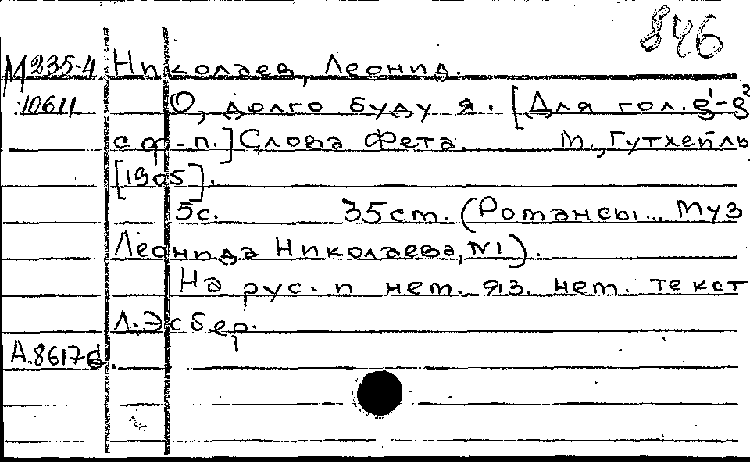 846
М235-4 Николаев, Леонид.
10611 О, долго буду я. [Для гол. g¹-g²
с ф-п.] Слова Фета. М., Гутхейль
[1905].
5с. 35cm. (Романсы... Муз
Леонида Николаева, №1).
На рус. п нем. яз. нем. текст
Л. Эсбер.
А.8617-б.